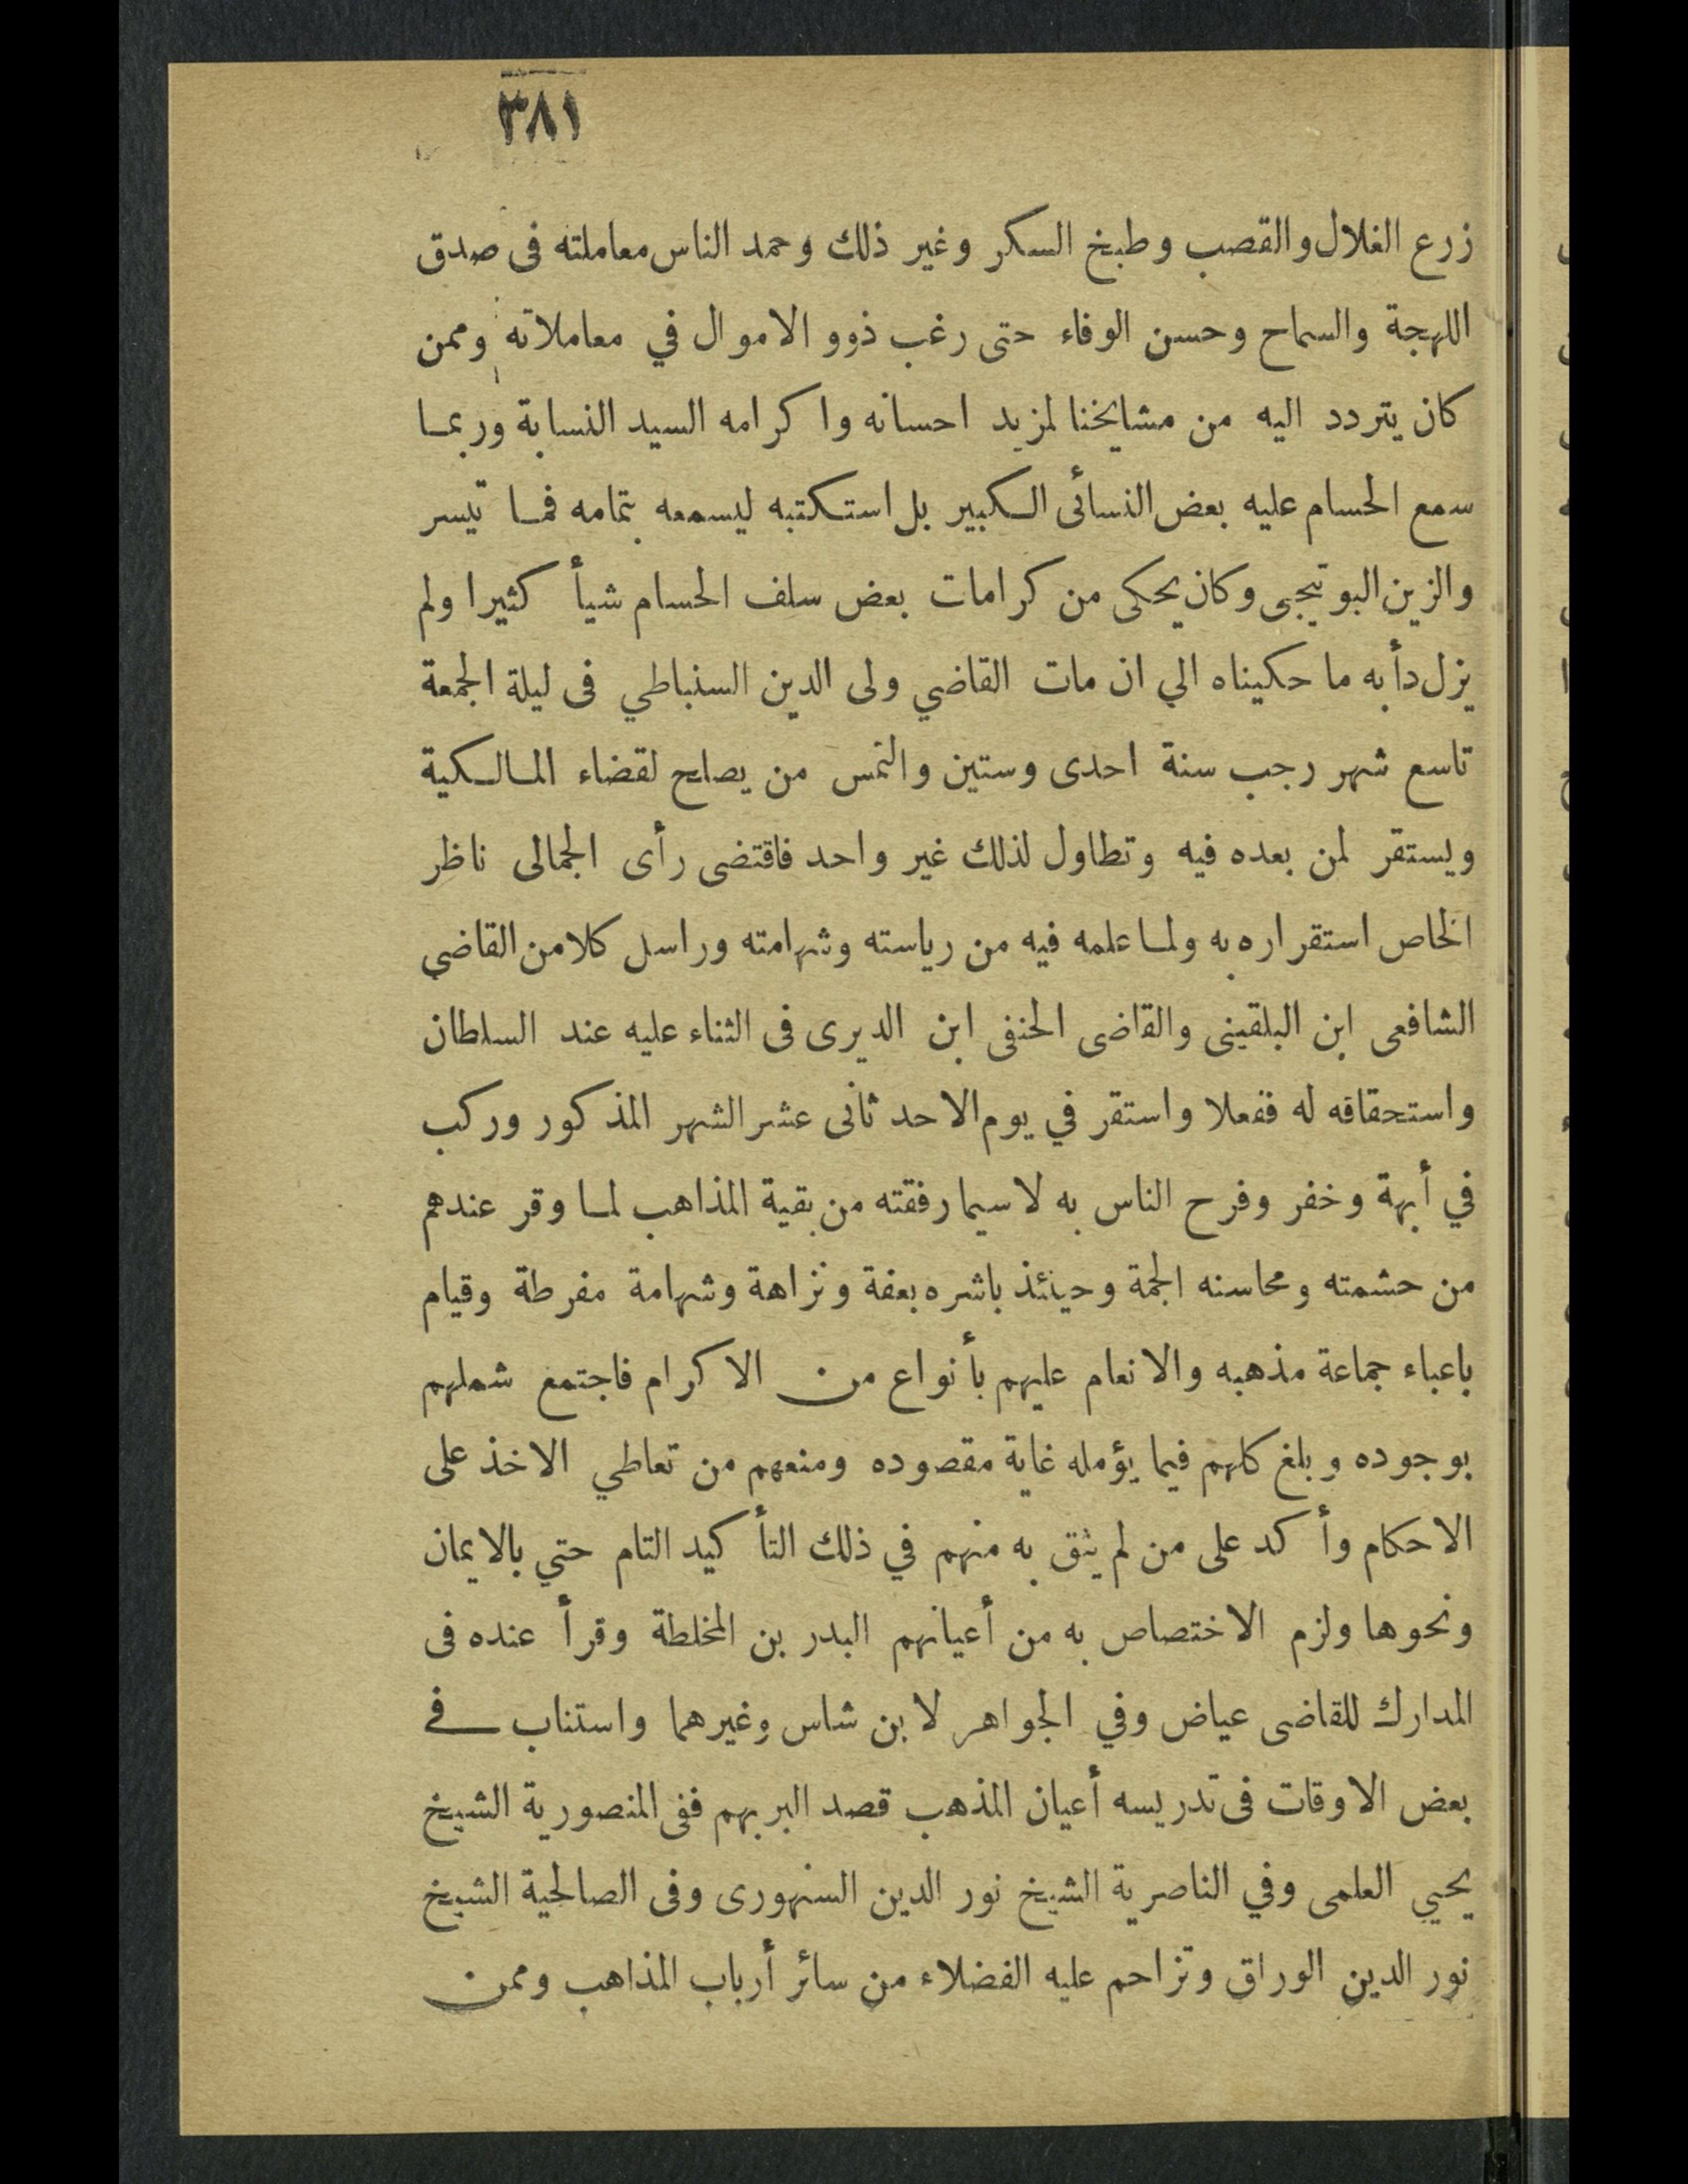 ٣٨١
زرع الغلال والقصب وطبخ السكر وغير ذلك وحمد الناس معاملته فى صدق
اللهجة والسماح وحسن الوفاء حتى رغب ذوو الاموال في معاملاته وممن
كان يتردد اليه من مشايخنا لمزيد احسانه واكرامه السيد النسابة وربما
سمع الحسام عليه بعض النسائى الكبير بل استكتبه ليسمعه بتمامه فما تيسر
والزين البوتيجى وكان يحكى من كرامات بعض سلف الحسام شيأ كثيرا ولم
يزل دأبه ما حكيناه الي ان مات القاضي ولى الدين السنباطي فى ليلة الجمعة
تاسع شهر رجب سنة احدى وستين والتمس من يصلح لقضاء المالكية
ويستقر لمن بعده فيه وتطاول لذلك غير واحد فاقتضى رأى الجمالى ناظر
الخاص استقراره به ولما علمه فيه من رياسته وشهامته وراسل كلا من القاضي
الشافعى ابن البلقينى والقاضى الحنفى ابن الديرى فى الثناء عليه عند السلطان
واستحقاقه له ففعلا واستقر في يوم الاحد ثانى عشر الشهر المذكور وركب
في أبهة وخفر وفرح الناس به لا سيما رفقته من بقية المذاهب لما وقر عندهم
من حشمته ومحاسنه الجمة وحينئذ باشره بعفة ونزاهة وشهامة مفرطة وقيام
باعباء جماعة مذهبه والانعام عليهم بأنواع من الاكرام فاجتمع شملهم
بوجوده وبلغ كلهم فيما يؤمله غاية مقصوده ومنعهم من تعاطي الاخذ على
الاحكام وأكد على من لم يثق به منهم في ذلك التأكيد التام حتي بالايمان
ونحوها ولزم الاختصاص به من أعيانهم البدر بن المخلطة وقرأ عنده فى
المدارك للقاضى عياض وفي الجواهر لابن شاس وغيرهما واستناب في
بعض الاوقات فى تدريسه أعيان المذهب قصد البر بهم ففى المنصورية الشيخ
يحيي العلمى وفي الناصرية الشيخ نور الدين السنهورى وفى الصالحية الشيخ
نور الدين الوراق وتزاحم عليه الفضلاء من سائر أرباب المذاهب وممن